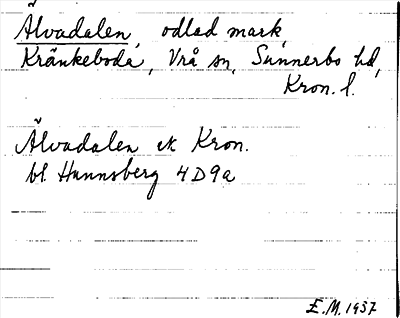 Älvadalen, odlad mark
Kränkeboda, Vrå sn, Sunnerbo hd,
Kron. l.
Älvadalen ek Kron.
bl. Hannsberg 4D9a
E.M. 1937